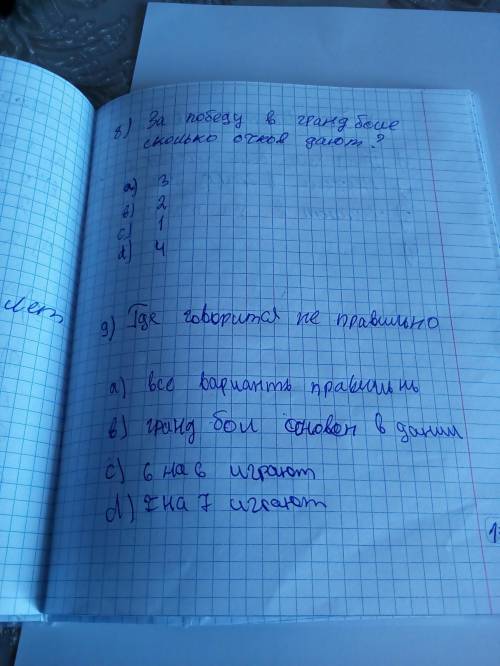 8) За победу в гранд боле
сколько очков дают?
a) 3
в) 2
c) 1
d) 4
лет
9) Где говорится не правильно
a) все варианть правильнь
в) гранд бол основон в дании
c) 6 на 6 играют
d) 7 на 7 играют